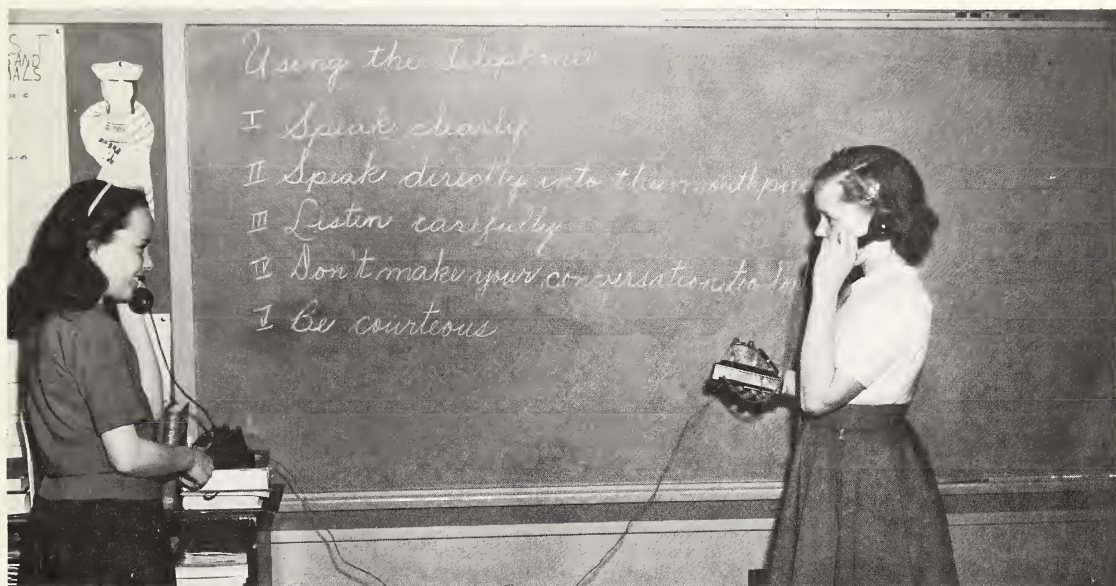 S T
AND
MALS
Using the Telephone
I Speak clearly
II Speak directly into the mouthpie
III Listen carefully
IV Don't make your conversation too lo
V Be courteous